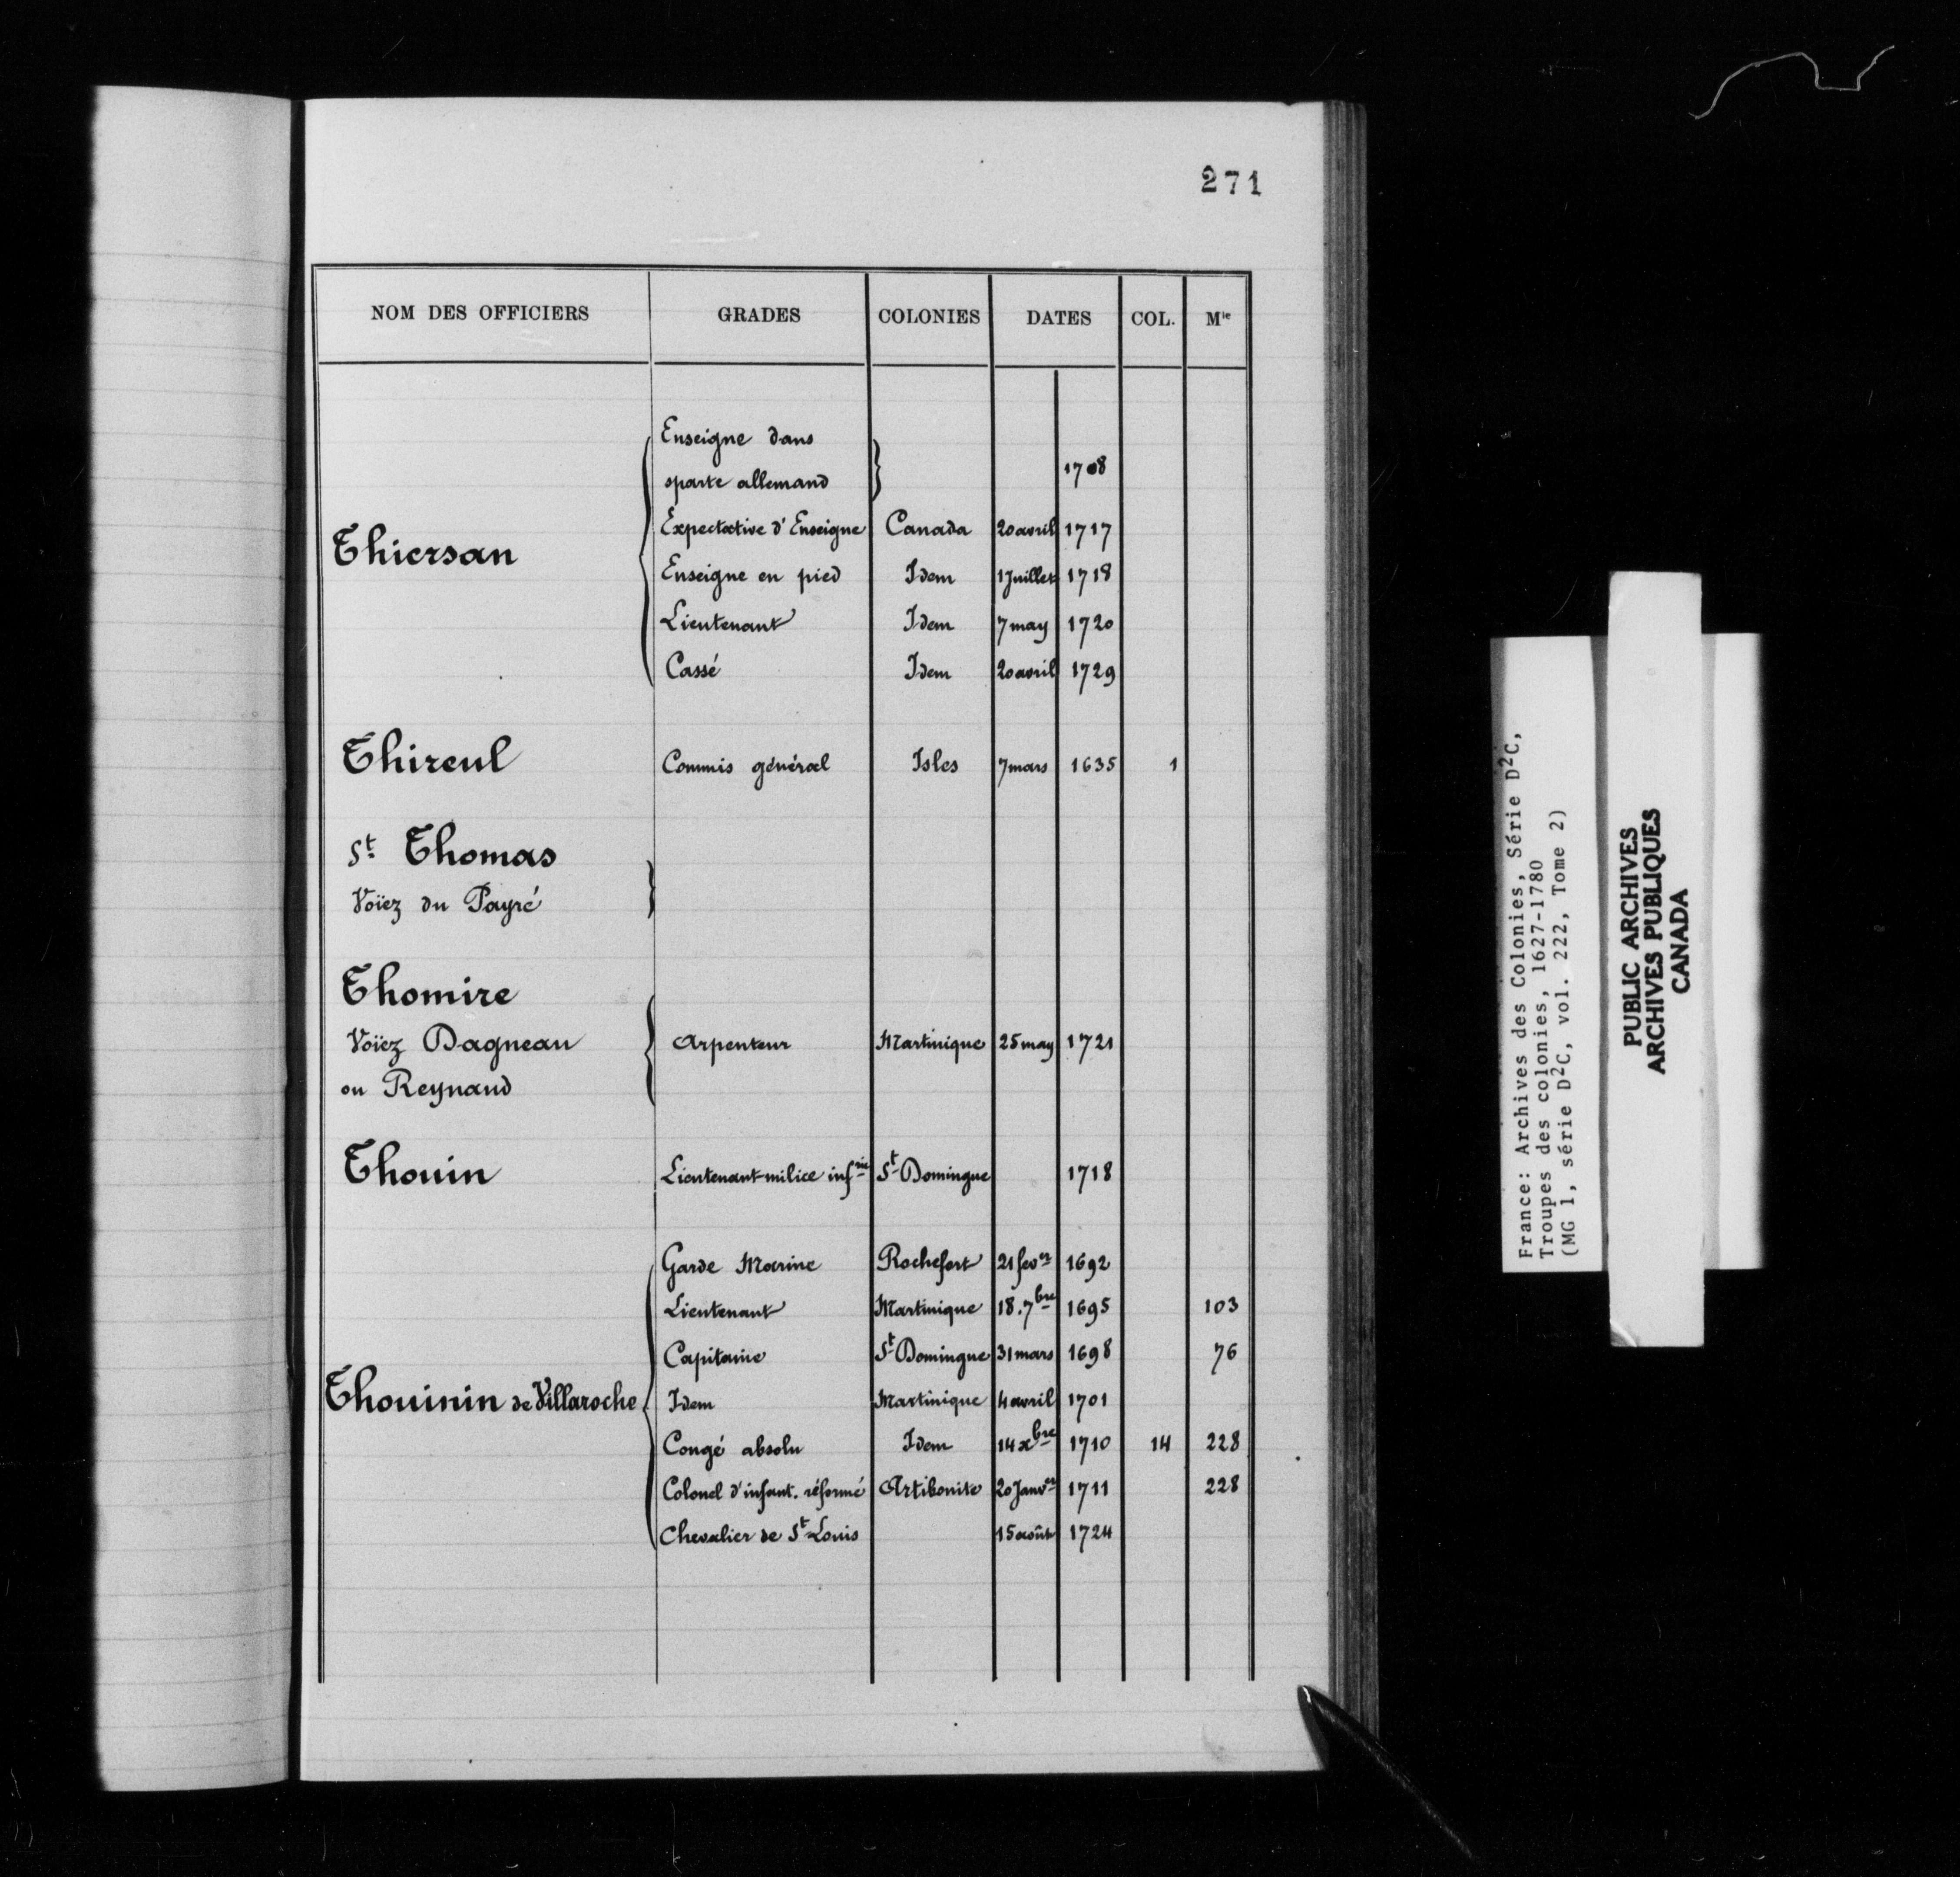 271
NOM DES OFFICIERS GRADES COLONIES DATES COL. Mle
Enseigne dans
sparte allemand 1708
Expectative d'Enseigne Canada 20 avril 1717
Thiersan
Enseigne en pied Idem 1 Juillet 1718
Lieutenant Idem 7 may 1720
Cassé Idem 20 avril 1729
Thireul Commis général Isles 7 mars 1635 1
St Thomas
Voïez du Payré
Thomire
Voïez Dagneau Arpenteur Martinique 25 may 1721
ou Reynaud
Thouin Lieutenant milice infrie St Domingue 1718
Garde Marine Rochefort 21 fever 1692
Lieutenant Martinique 18.7bre 1695 103
Capitaine St Domingue 31 mars 1698 76
Thouinin de Villaroche Idem Martinique 4 avril 1701
Congé absolu Idem 14 xbre 1710 14 228
Colonel d'infant. réformé Artibonite 20 Janver 1711 228
Chevalier de St Louis 15 août 1724
France: Archives des Colonies, Série D2C,
Troupes des colonies, 1627-1780
(MG 1, série D2C, vol. 222, Tome 2)
PUBLIC ARCHIVES
ARCHIVES PUBLIQUES
CANADA